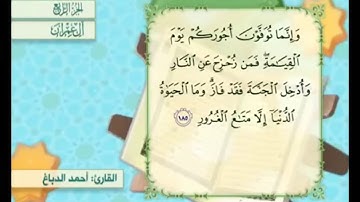 الجزء الرابع
آل عمران
وَإِنَّمَا تُوَفَّوْنَ أُجُورَكُمْ يَوْمَ
الْقِيَمَةِ فَمَن زُحْزِحَ عَنِ النَّارِ
وَأُدْخِلَ الْجَنَّةَ فَقَدْ فَازَ وَمَا الْحَيَوٰةُ
الدُّنْيَا إِلَّا مَتَعُ الْغُرُورِ ١٨٥
القارئ: أحمد الدباغ